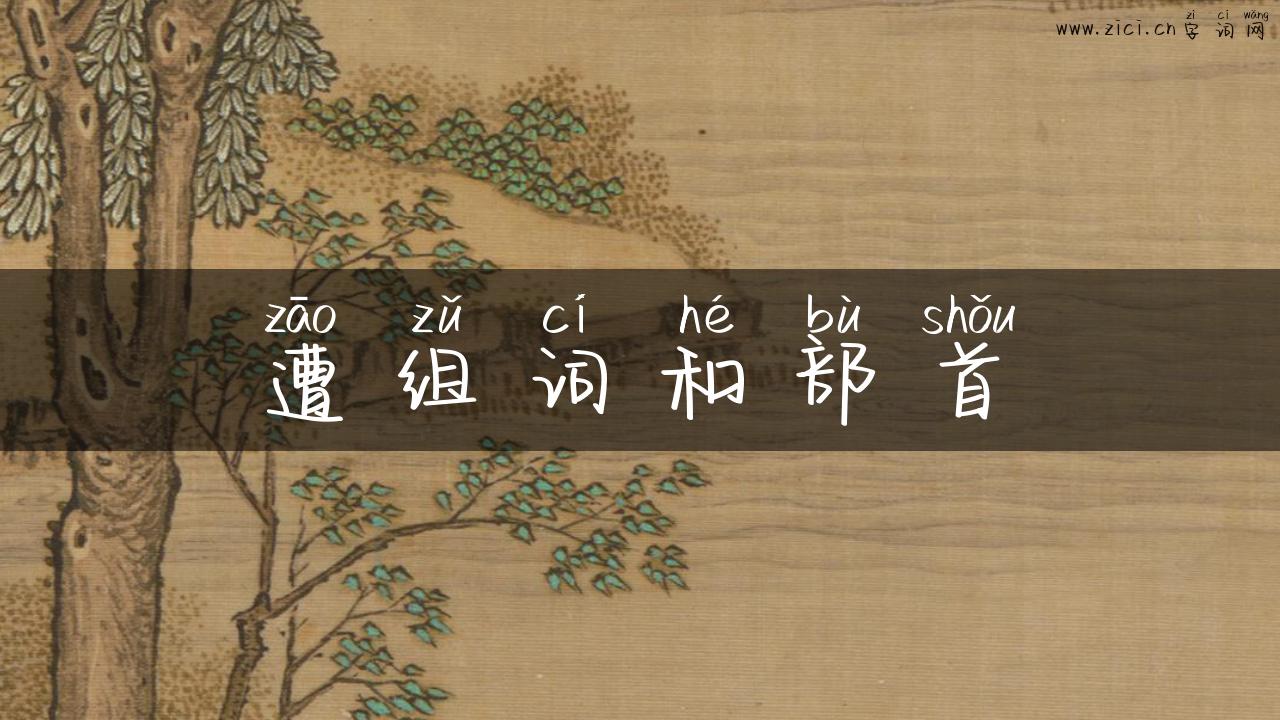 zì cí wǎng
www.zici.cn字词网
zāo zǔ cí hé bù shǒu
遭组词和部首